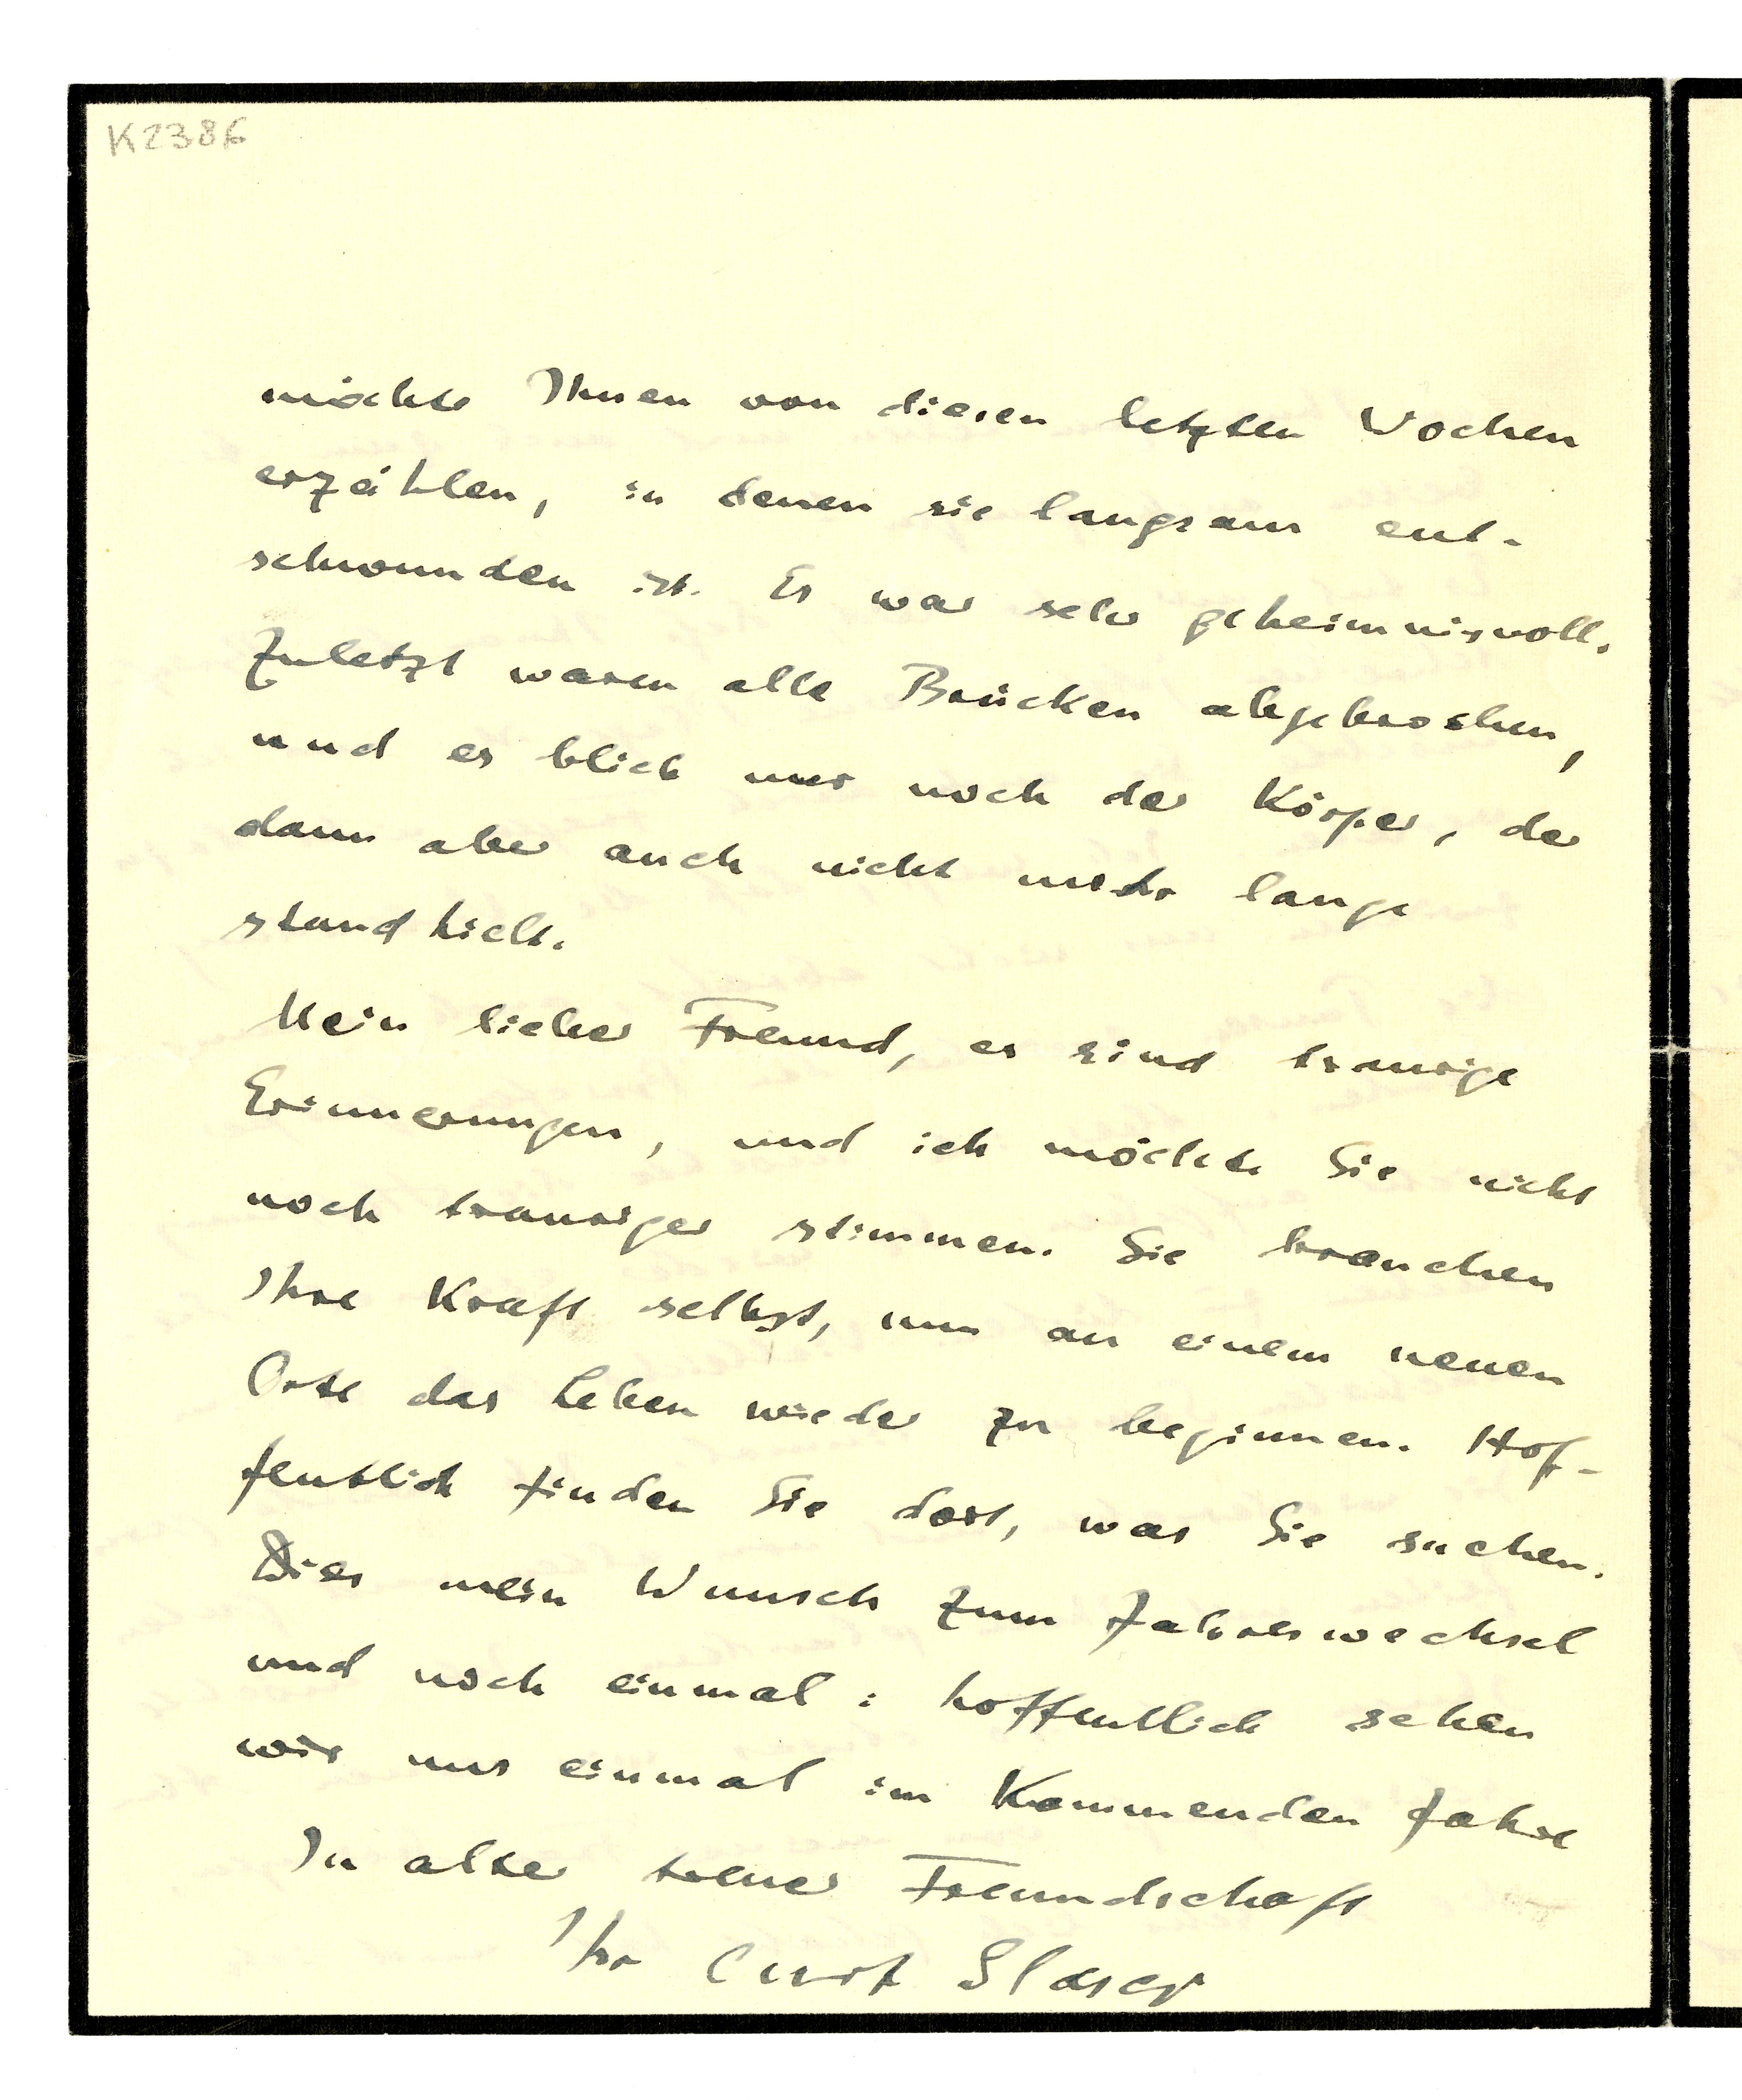 K2386
möchte Ihnen von diesen letzten Wochen
erzählen, in denen sie langsam ent-
schwunden ist. Es war sehr geheimnisvoll.
Zuletzt waren alle Brücken abgebrochen,
und es blieb nur noch der Körper, der
dann aber auch nicht mehr lange
stand hielt.
Mein lieber Freund, es sind traurige
Erinnerungen, und ich möchte Sie nicht
noch trauriger stimmen. Sie brauchen
Ihre Kraft selbst, um an einem neuen
Orte das Leben wieder zu beginnen. Hof-
fentlich finden Sie dort, was Sie suchen.
Dies mein Wunsch zum Jahreswechsel
und noch einmal: hoffentlich sehen
wir uns einmal im Kommenden Jahre
In alter treuer Freundschaft
Ihr Curt Glaser